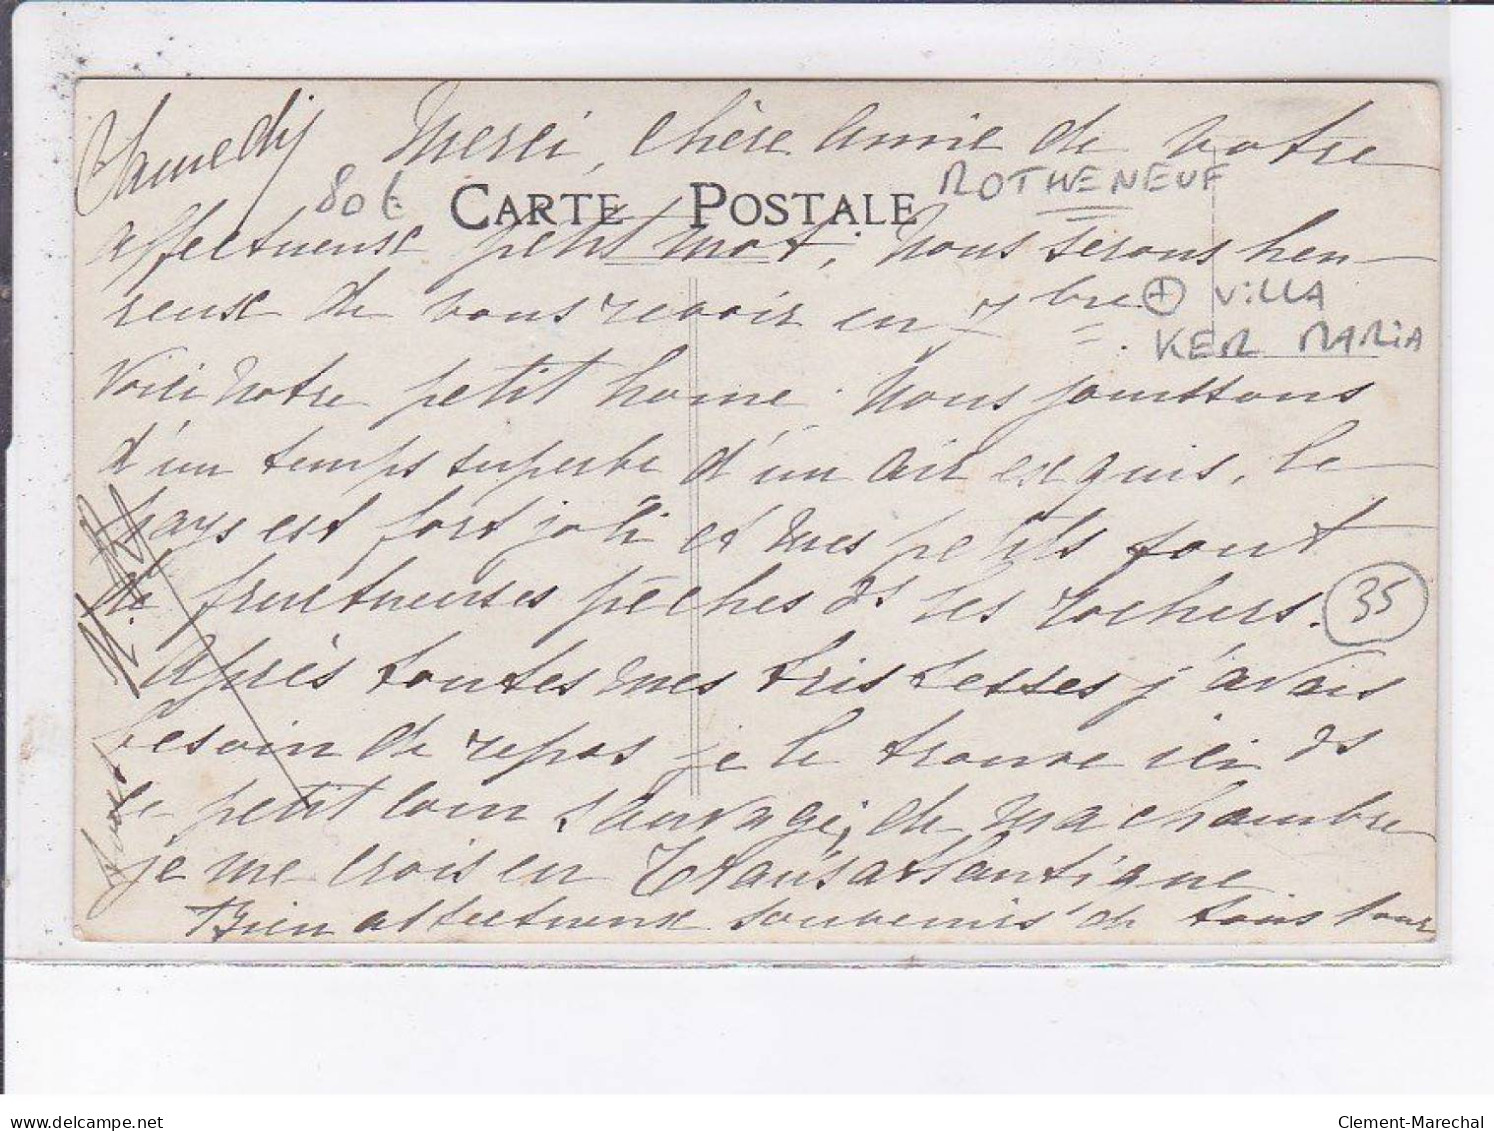 Samedi Merci, chère amie de votre
80€ CARTE POSTALE ROTHENEUF
affectueux petit mot, nous serons heu-
reux de vous revoir en 7bre + ViLLA
KER MARiA
Voici notre petit home. Nous jouissons
d'un temps superbe d'un air exquis, le
pays est fort joli et mes petits font
de fructueuses pêches ds les rochers. 35
Après toutes mes tristesses j'avais
besoin de repos je le trouve ici ds
ce petit coin sauvage, de ma chambre
je me crois en Transatlantique
Bien affectueux souvenirs de tous pour
vous
delcampe.net
Clement-Marechal